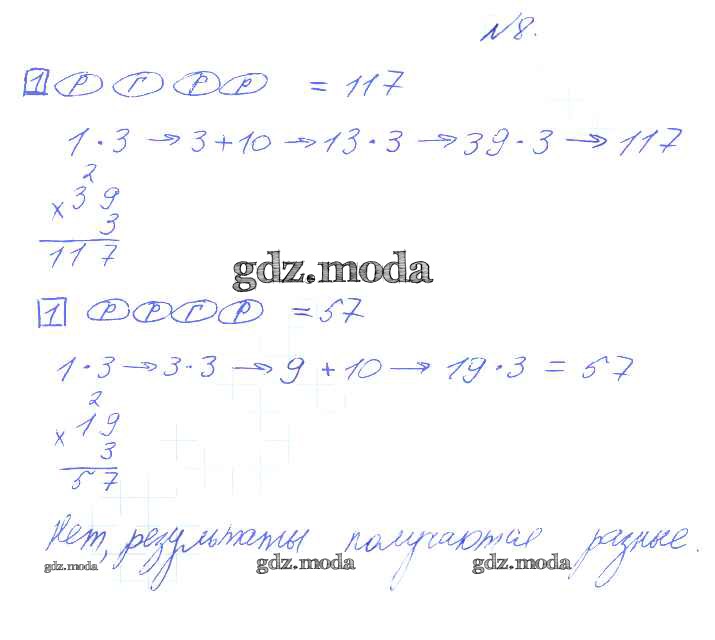 №8.
1 Р Г Р Р = 117
1·3→3+10→13·3→39·3→117
2
× 39
3
117
gdz.moda
1 Р Р Г Р = 57
1·3→3·3→9+10→19·3=57
2
× 19
3
57
Нет, результаты получаются разные.
gdz.moda gdz.moda gdz.moda